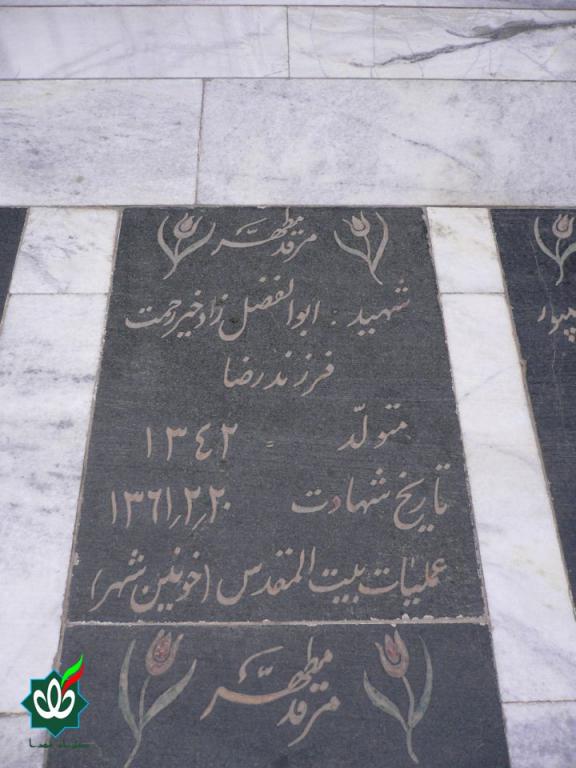 مرقد مطهر
شهید : ابوالفضل زادخیررحمت
فرزند رضا
متولّد = ۱۳۴۲
تاریخ شهادت ۱۳۶۱٫۲٫۲۰
عملیات بیت المقدس (خونین شهر)
مرقد مطهر